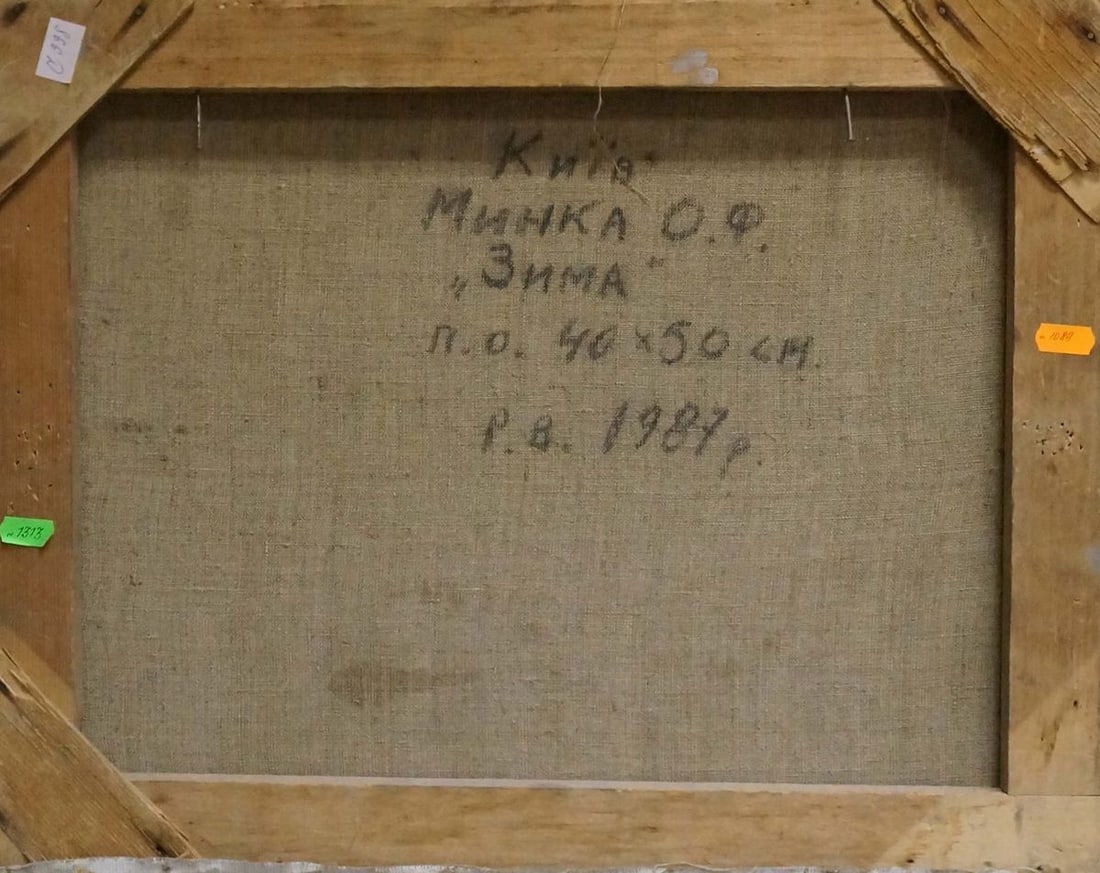 Київ
Минка О.Ф.
„Зима"
п.о. 40x50 см.
Р.В. 1987 р.
1313
1089